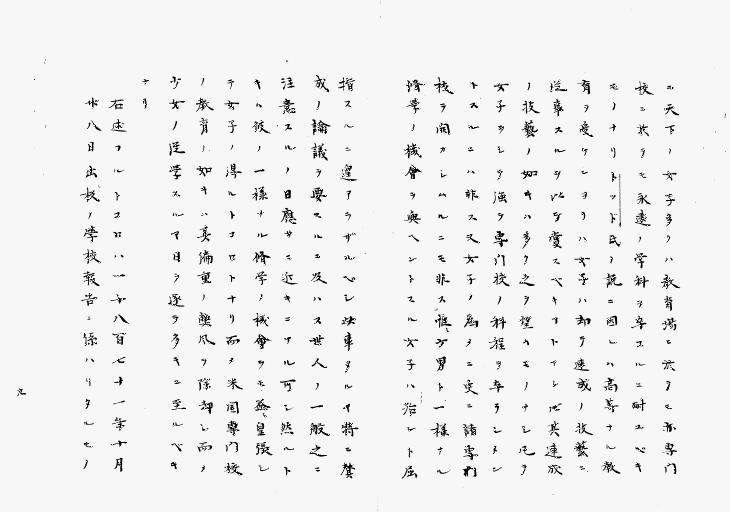 ニ天下ノ女子多クハ教育場ニ於テモ亦専門
校ニ於テモ永遠ノ学科ヲ卒スルニ耐ユベキ
モノナリトッド氏ノ説ニ因レハ高尊ナル教
育ヲ受ケシヨリハ女子ハ却テ速成ノ技藝ニ
従事スルヲ以テ賞スベキコトナシ其速成
ノ技藝ノ如キハ多ク之ヲ望ムモノナシ凡ソ
女子ヲシテ強テ専門校ノ科程ヲ卒ラシメン
トスルニハ非ス又女子ノ為ニ更ニ諸専門
校ヲ開カシムルニモ非ス惟男ト一様ナル
脩学ノ機會ヲ與ヘントスル女子ハ殆ント屈
指スルニ遑アラザルベシ此事タルヤ将ニ賛
成ノ論議ヲ要スルニ及ハス世人ノ一般之ニ
注意スルノ日應サニ近キニアル可シ然ルト
キハ彼ノ一様ナル脩学ノ機會ヲモ益皇張シ
テ女子ノ得ルトコロトナリ而メ米国専門校
ノ教育ノ如キハ其偏重ノ弊風ヲ除却シ而メ
少女ノ従学スルマ日ヲ逐テ多キニ至ルベキ
ナリ
右述フルトコロハ一千八百七十一年十月
廿八日出板ノ學校報告ニ係ハリタルモノ
九